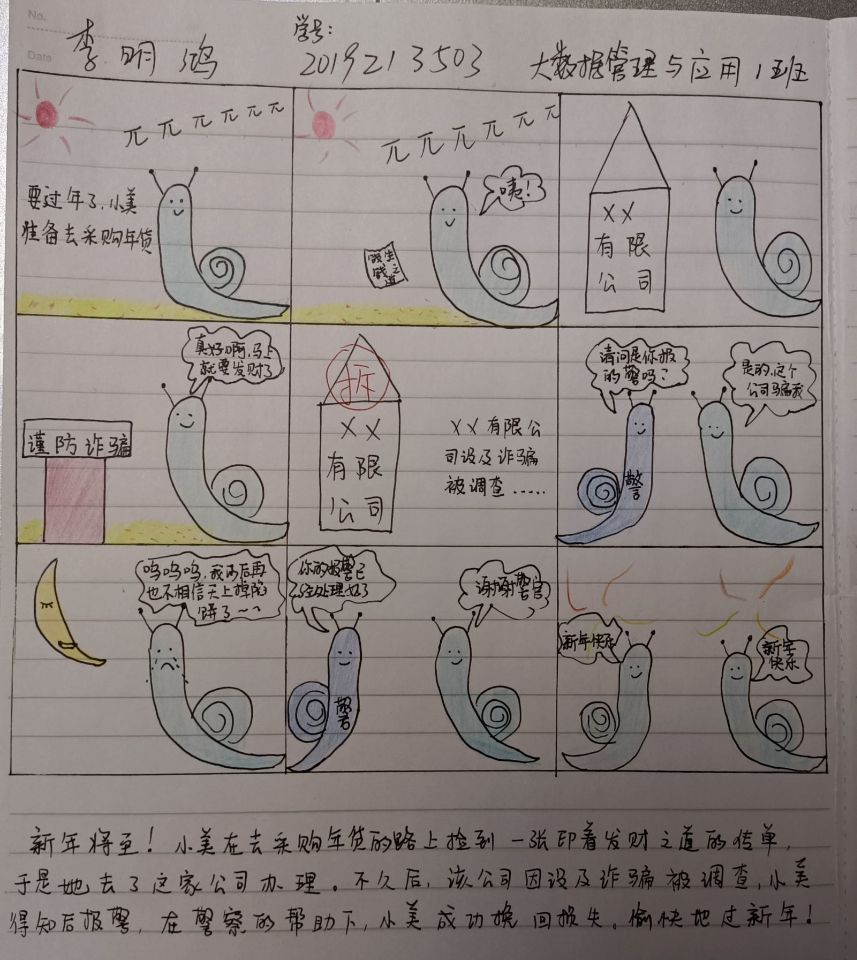 No.
Date
学号:
李明鸿 2019213503 大数据管理与应用1班
兀兀兀兀兀兀
要过年了,小美
准备去采购年货
兀兀兀兀兀兀
咦!
生之道
XX
有限
公司
真好啊,马上
就要发财了
谨防诈骗
拆
XX
有限
公司
XX有限公
司设及诈骗
被调查......
请问是你报
的警吗?
是的,这个
公司骗我
警
呜呜呜,我以后再
也不相信天上掉馅
饼了~~
你的报警已
经处理好了
警
谢谢警官
新年快乐
新年
快乐
新年将至!小美在去采购年货的路上捡到一张印着发财之道的传单,
于是她去了这家公司办理。不久后,该公司因设及诈骗被调查,小美
得知后报警,在警察的帮助下,小美成功挽回损失。愉快地过新年!